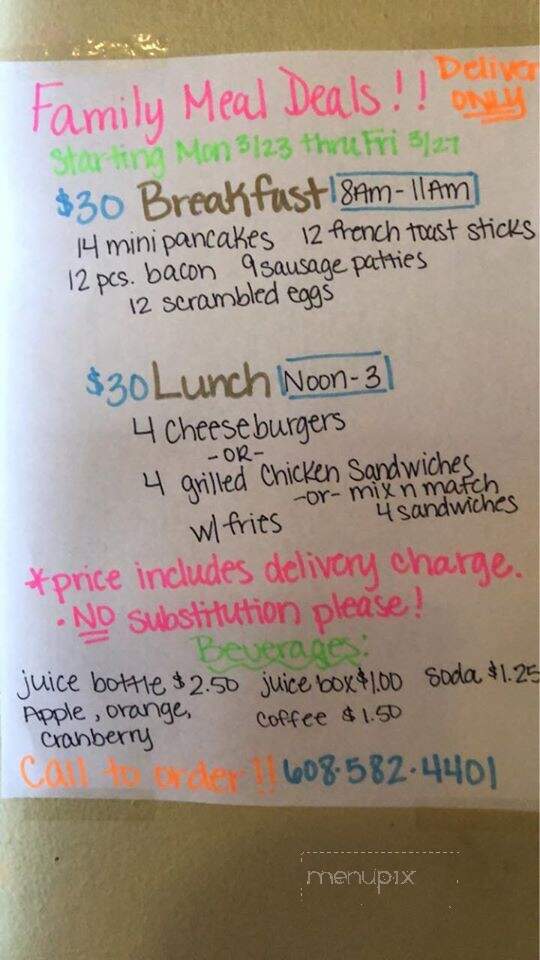 Family Meal Deals!! Deliver
ONLY
Starting Mon 3/23 thru Fri 3/27
$30 Breakfast 8Am-11Am
14 mini pancakes 12 french toast sticks
12 pcs. bacon 9 sausage patties
12 scrambled eggs
$30 Lunch Noon-3
4 Cheeseburgers
-OR-
4 grilled Chicken Sandwiches
-or- mix n match
w/ fries 4 sandwiches
*price includes delivery charge.
• NO substitution please!
Beverages:
juice bottle $2.50 juice box $1.00 Soda $1.25
Apple, orange, Coffee $1.50
cranberry
Call to order!! 608-582-4401
menupix